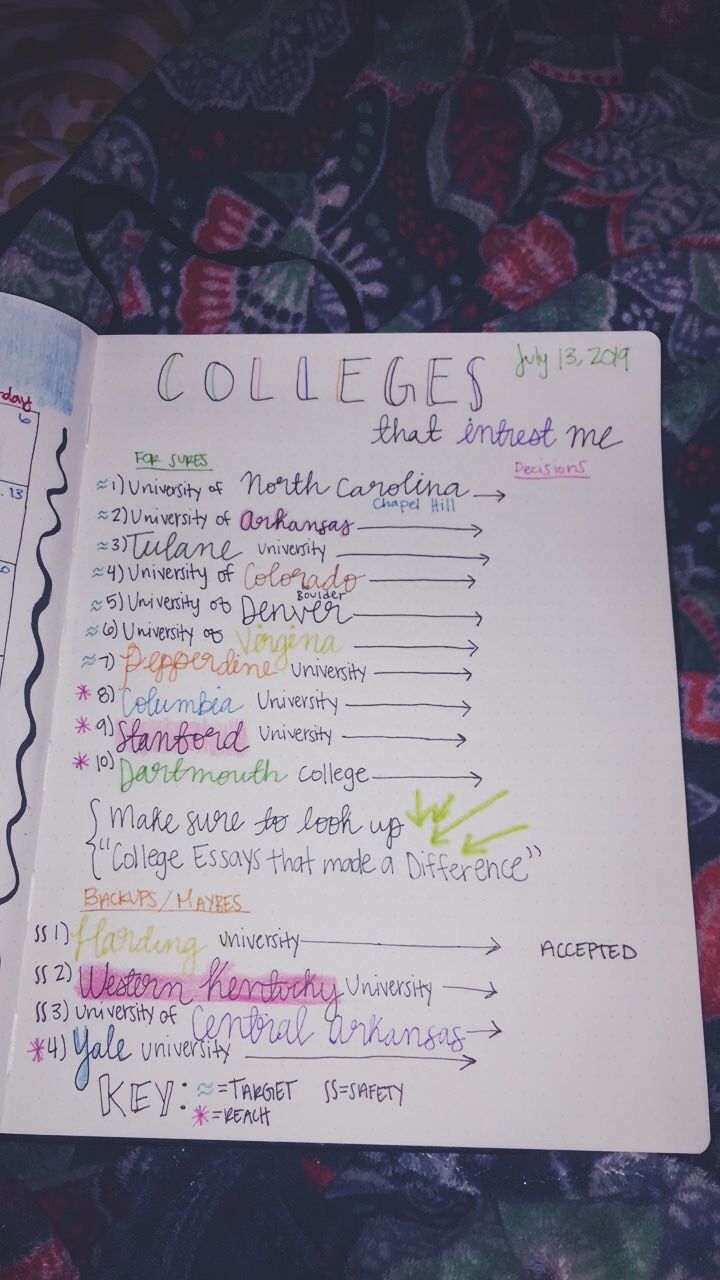 rday
6
. 13
COLLEGES
July 13, 2019
that intrest me
FOR SURES
Decisions
≈ 1) University of North Carolina →
Chapel Hill
≈ 2) University of Arkansas →
≈ 3) Tulane university →
≈ 4) University of Colorado →
Boulder
≈ 5) University of Denver →
≈ 6) University of Virgina →
≈ 7) Pepperdine University →
* 8) Columbia University →
* 9) Stanford University →
* 10) Dartmouth college →
{ Make sure to look up
{ "College Essays that made a Difference"
BACKUPS / MAYBES
SS 1) Harding university → ACCEPTED
SS 2) Western Kentucky University →
SS 3) university of Central Arkansas →
* 4) Yale university →
KEY: ≈ = TARGET SS = SAFETY
* = REACH